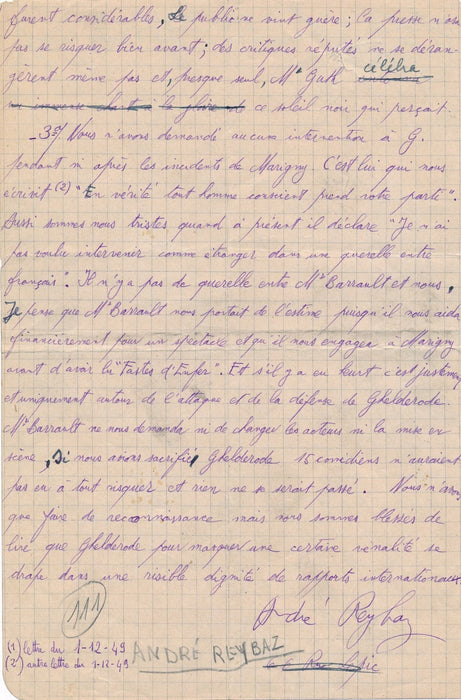 furent considérables, Le public ne vint guère ; la presse n'osa
pas se risquer bien avant ; des critiques réputés ne se déran-
gèrent même pas et, presque seul, Mr Guth célébra
ce soleil noir qui perçait.
_3°/ Nous n'avons demandé aucune intervention à G.
pendant ni après les incidents de Marigny. C'est lui qui nous
écrivit (2) "En vérité tout homme conscient prend votre parti".
Aussi sommes nous tristes quand à présent il déclare "Je n'ai
pas voulu intervenir comme étranger dans une querelle entre
français". Il n'y a pas de querelle entre Mr Barrault et nous.
Je pense que Mr Barrault nous portait de l'estime puisqu'il nous aida
financièrement pour un spectacle et qu'il nous engagea à Marigny
avant d'avoir lu "Fastes d'Enfer". Et s'il y a eu heurt c'est justement
et uniquement autour de l'attaque et de la défense de Ghelderode.
Mr Barrault ne nous demanda ni de changer les acteurs ni la mise en
scène, Si nous avons sacrifié Ghelderode 15 comédiens n'auraient
pas eu à tout risquer et rien ne se serait passé. Nous n'avons
que faire de reconnaissance mais nous sommes blessés de
lire que Ghelderode pour masquer une certaine vénalité se
drape dans une risible dignité de rapports internationaux.
André Reybaz
111
(1) lettre du 1-12-49
(2) autre lettre du 1-12-49
ANDRÉ REYBAZ